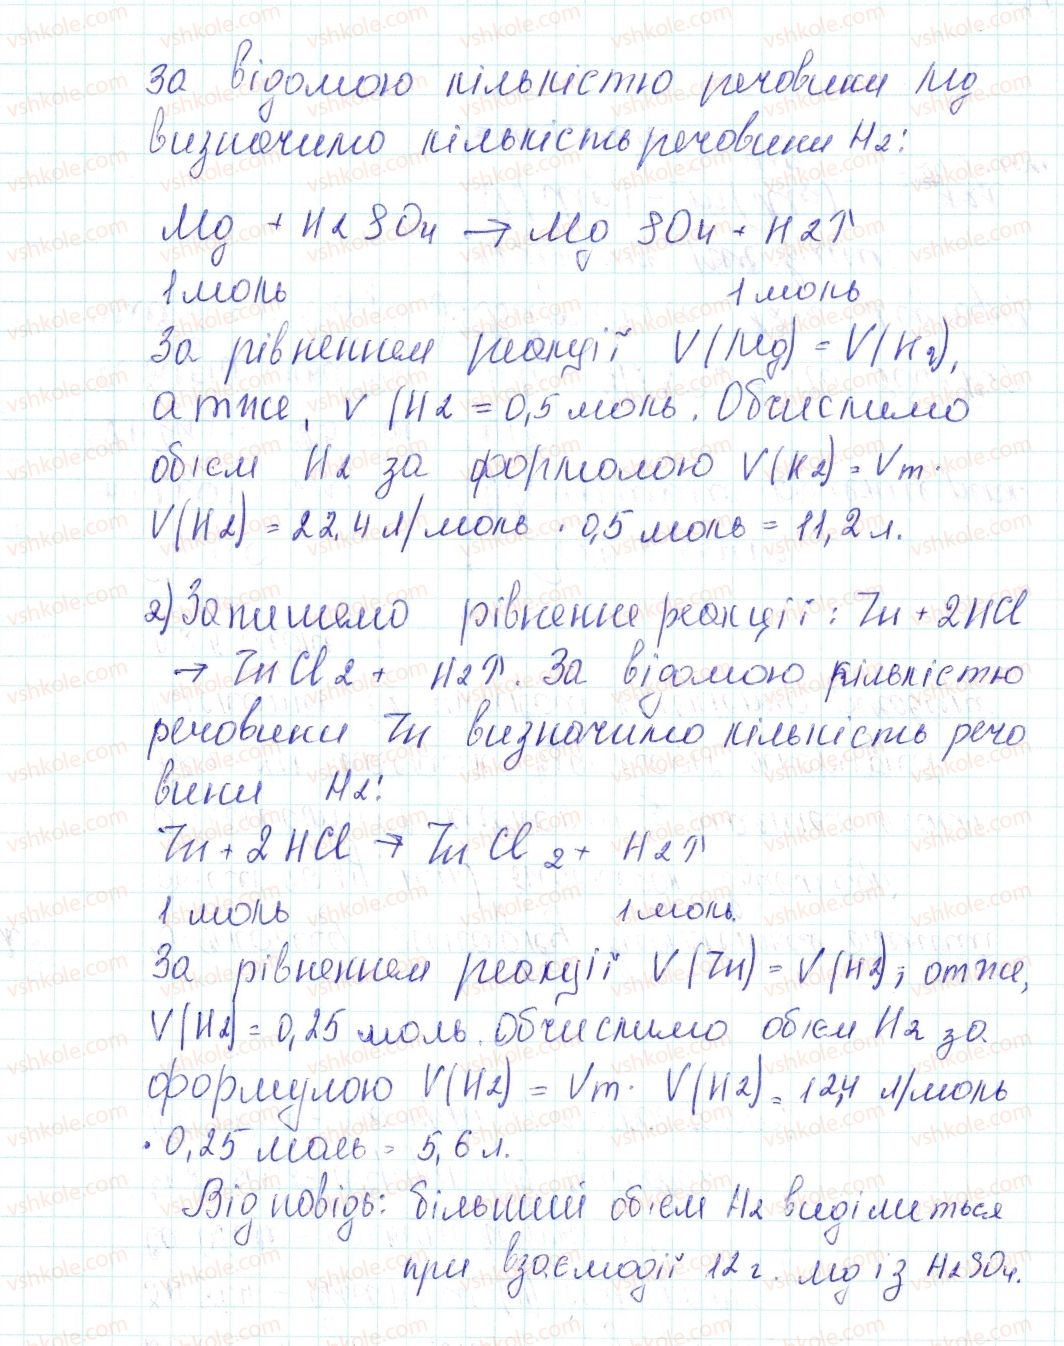 За відомою кількістю речовини Mg
визначимо кількість речовини H2:
Mg + H2SO4 → MgSO4 + H2↑
1 моль 1 моль
За рівнянням реакції V(Mg) = V(H2),
отже, V(H2 = 0,5 моль. Обчислимо
об'єм H2 за формолою V(H2) = Vm·
V(H2) = 22,4 л/моль · 0,5 моль = 11,2 л.
2) Запишемо рівняння реакції: Zn + 2HCl
→ ZnCl2 + H2↑. За відомою кількістю
речовини Zn визначимо кількість речо
вини H2:
Zn + 2HCl → ZnCl2 + H2↑
1 моль 1 моль.
За рівнянням реакції V(Zn) = V(H2); отже,
V(H2) = 0,25 моль. Обчислимо об'єм H2 за
формулою V(H2) = Vm· V(H2) = 12,4 л/моль
· 0,25 моль = 5,6 л.
Відповідь: більший об'єм H2 виділиться
при взаємодії 12 г. Mg із H2SO4.